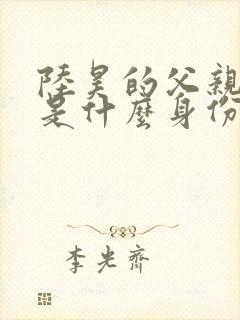 陸昊的父親
是什麼身份
李光齊